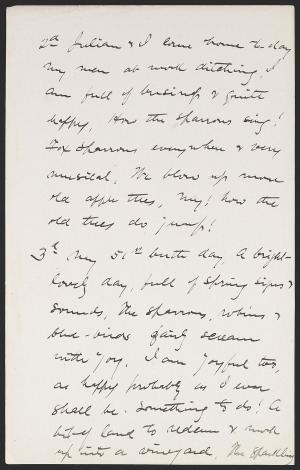 2d Julian & I came home to-day
my men at work ditching, I
am full of business & quite
happy. How the sparrows sing!
Fox sparrows everywhere & very
musical. We blow up more
old apple trees, my! how the
old trees do jump!
3d My 51st birth day. A bright
lovely day, full of spring signs &
sounds, the sparrows, robins &
blue-birds fairly scream
with joy. I am joyful too,
as happy probably as I ever
shall be. Something to do! A
bit of land to redeem & work
up into a vineyard. The sparkling